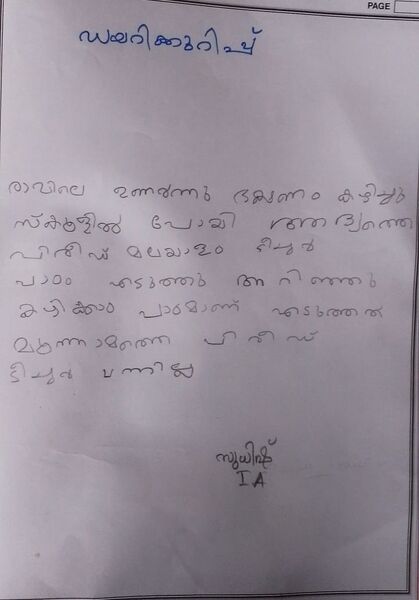 PAGE
ഡയറിക്കുറിപ്പ്
രാവിലെ ഉണർന്നു ഭക്ഷണം കഴിച്ചു
സ്കൂളിൽ പോയി ആദ്യത്തെ
പിരീഡ് മലയാളം ടീച്ചർ
പാഠം എടുത്തു അറിഞ്ഞു
കഴിക്കാം പാഠമാണ് എടുത്തത്
മൂന്നാമത്തെ പിരീഡ്
ടീച്ചർ വന്നില്ല
സുധിഷ്
I A